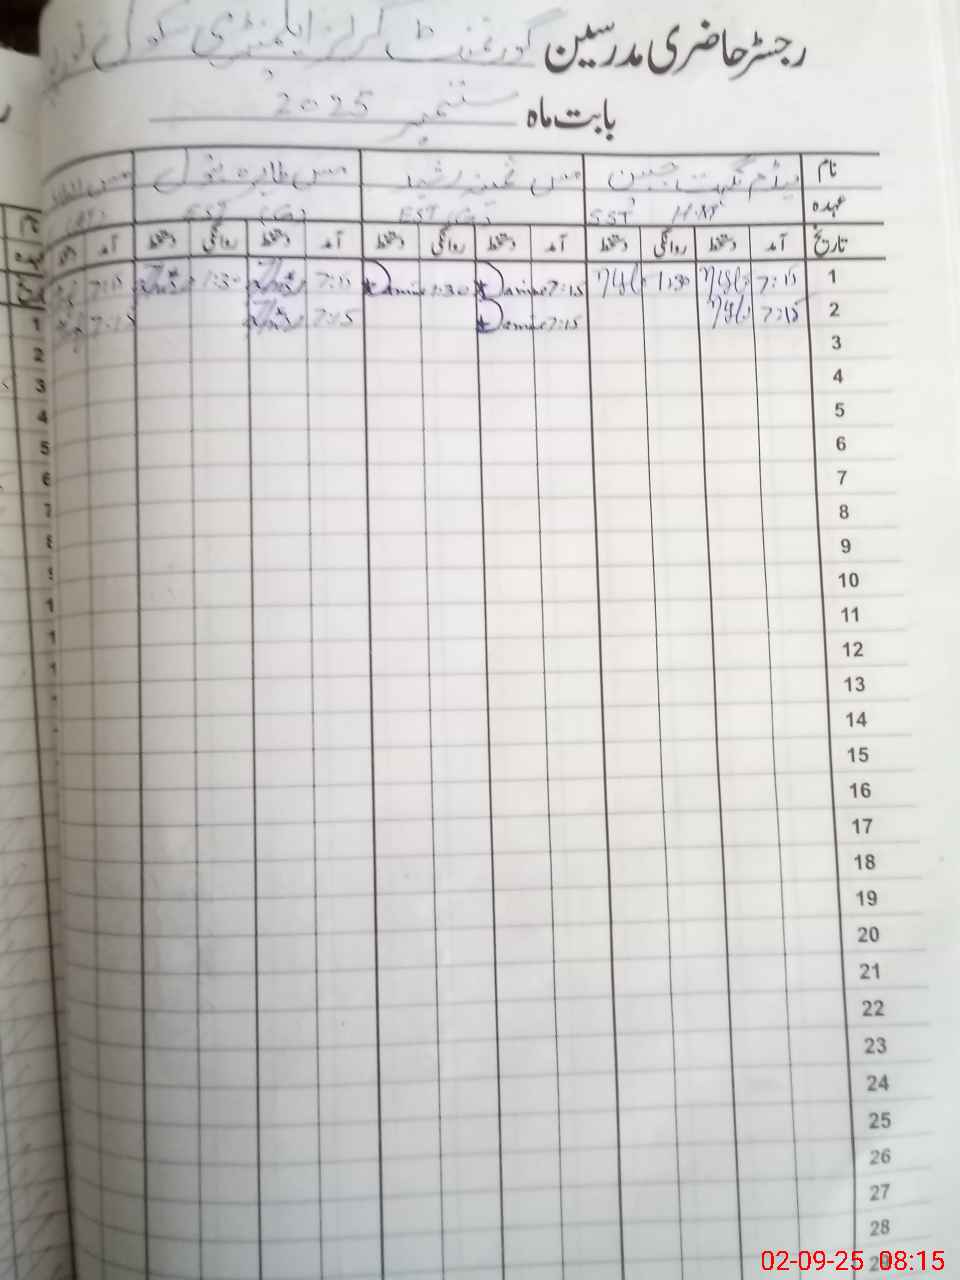 رجسٹر حاضری مدرسین گورنمنٹ گرلز ایلیمنٹری سکول
بابت ماہ ستمبر 2025
نام میڈم نگہت جبین مس ثمینہ رشید مس طاہرہ بتول مس
عہدہ SST H.M EST (G) EST (G)
تاریخ آمد دستخط روانگی دستخط آمد دستخط روانگی دستخط آمد دستخط روانگی دستخط آمد
1 7:15 1:30 7:15 1:30 7:15 1:30 7:15
2 7:15 7:15 7:15 7:15
3
4
5
6
7
8
9
10
11
12
13
14
15
16
17
18
19
20
21
22
23
24
25
26
27
28
29
02-09-25 08:15